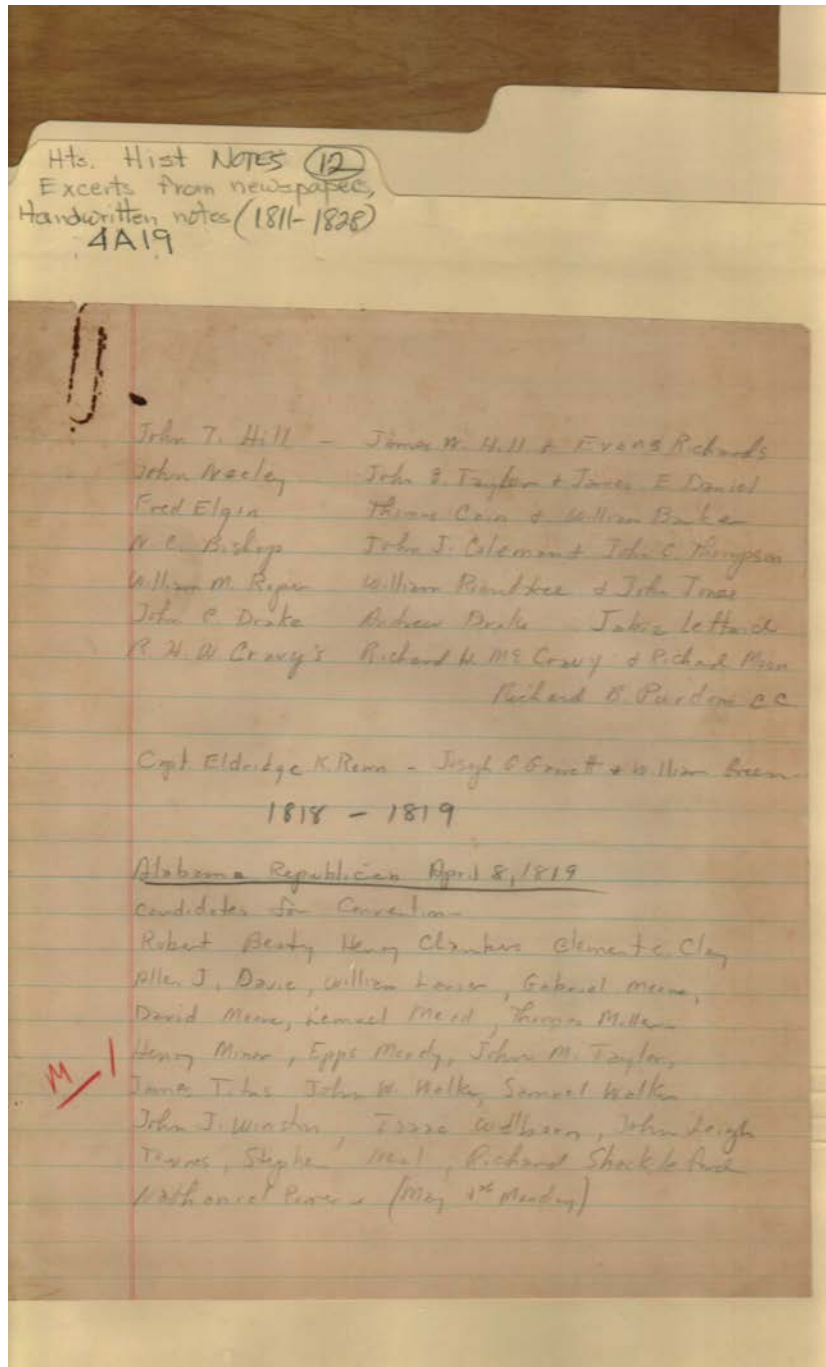 Hts. Hist NOTES (12)
Excerts from newspapers,
Handwritten notes (1811-1828)
4A19
John T. Hill - James W. Hill & Evans Richards
John Neeley John B. Taylor & James E Daniel
Fred Elgin Thomas Cain & William Barker
N. C. Bishop John J. Coleman & John C. Thompson
William M. Roper William Rountree & John Jones
John C Drake Andrew Drake Jabic Leftwich
R. H. W Cravy's Richard W. McCravy & Richard
Richard B. Purdom CC
Capt. Eldridge K. Renn - Joseph C & William Green
1818 - 1819
Alabama Republican April 8, 1819
Candidates for Convention
Robert Beaty Henry Chambers Clement C. Clay
Allen J. Davie, William Lanier, Gabriel Moore,
David Moore, Lemuel Mead, Thomas Miller
Henry Minor, Epps Moody, John M. Taylor,
M James Titus John W. Walker, Samuel Walker
John J. Winston, Isaac Wellborn, John Leigh
Townes, Stephen Neal, Richard Shackleford
Nathaniel Power (May 1st Monday)